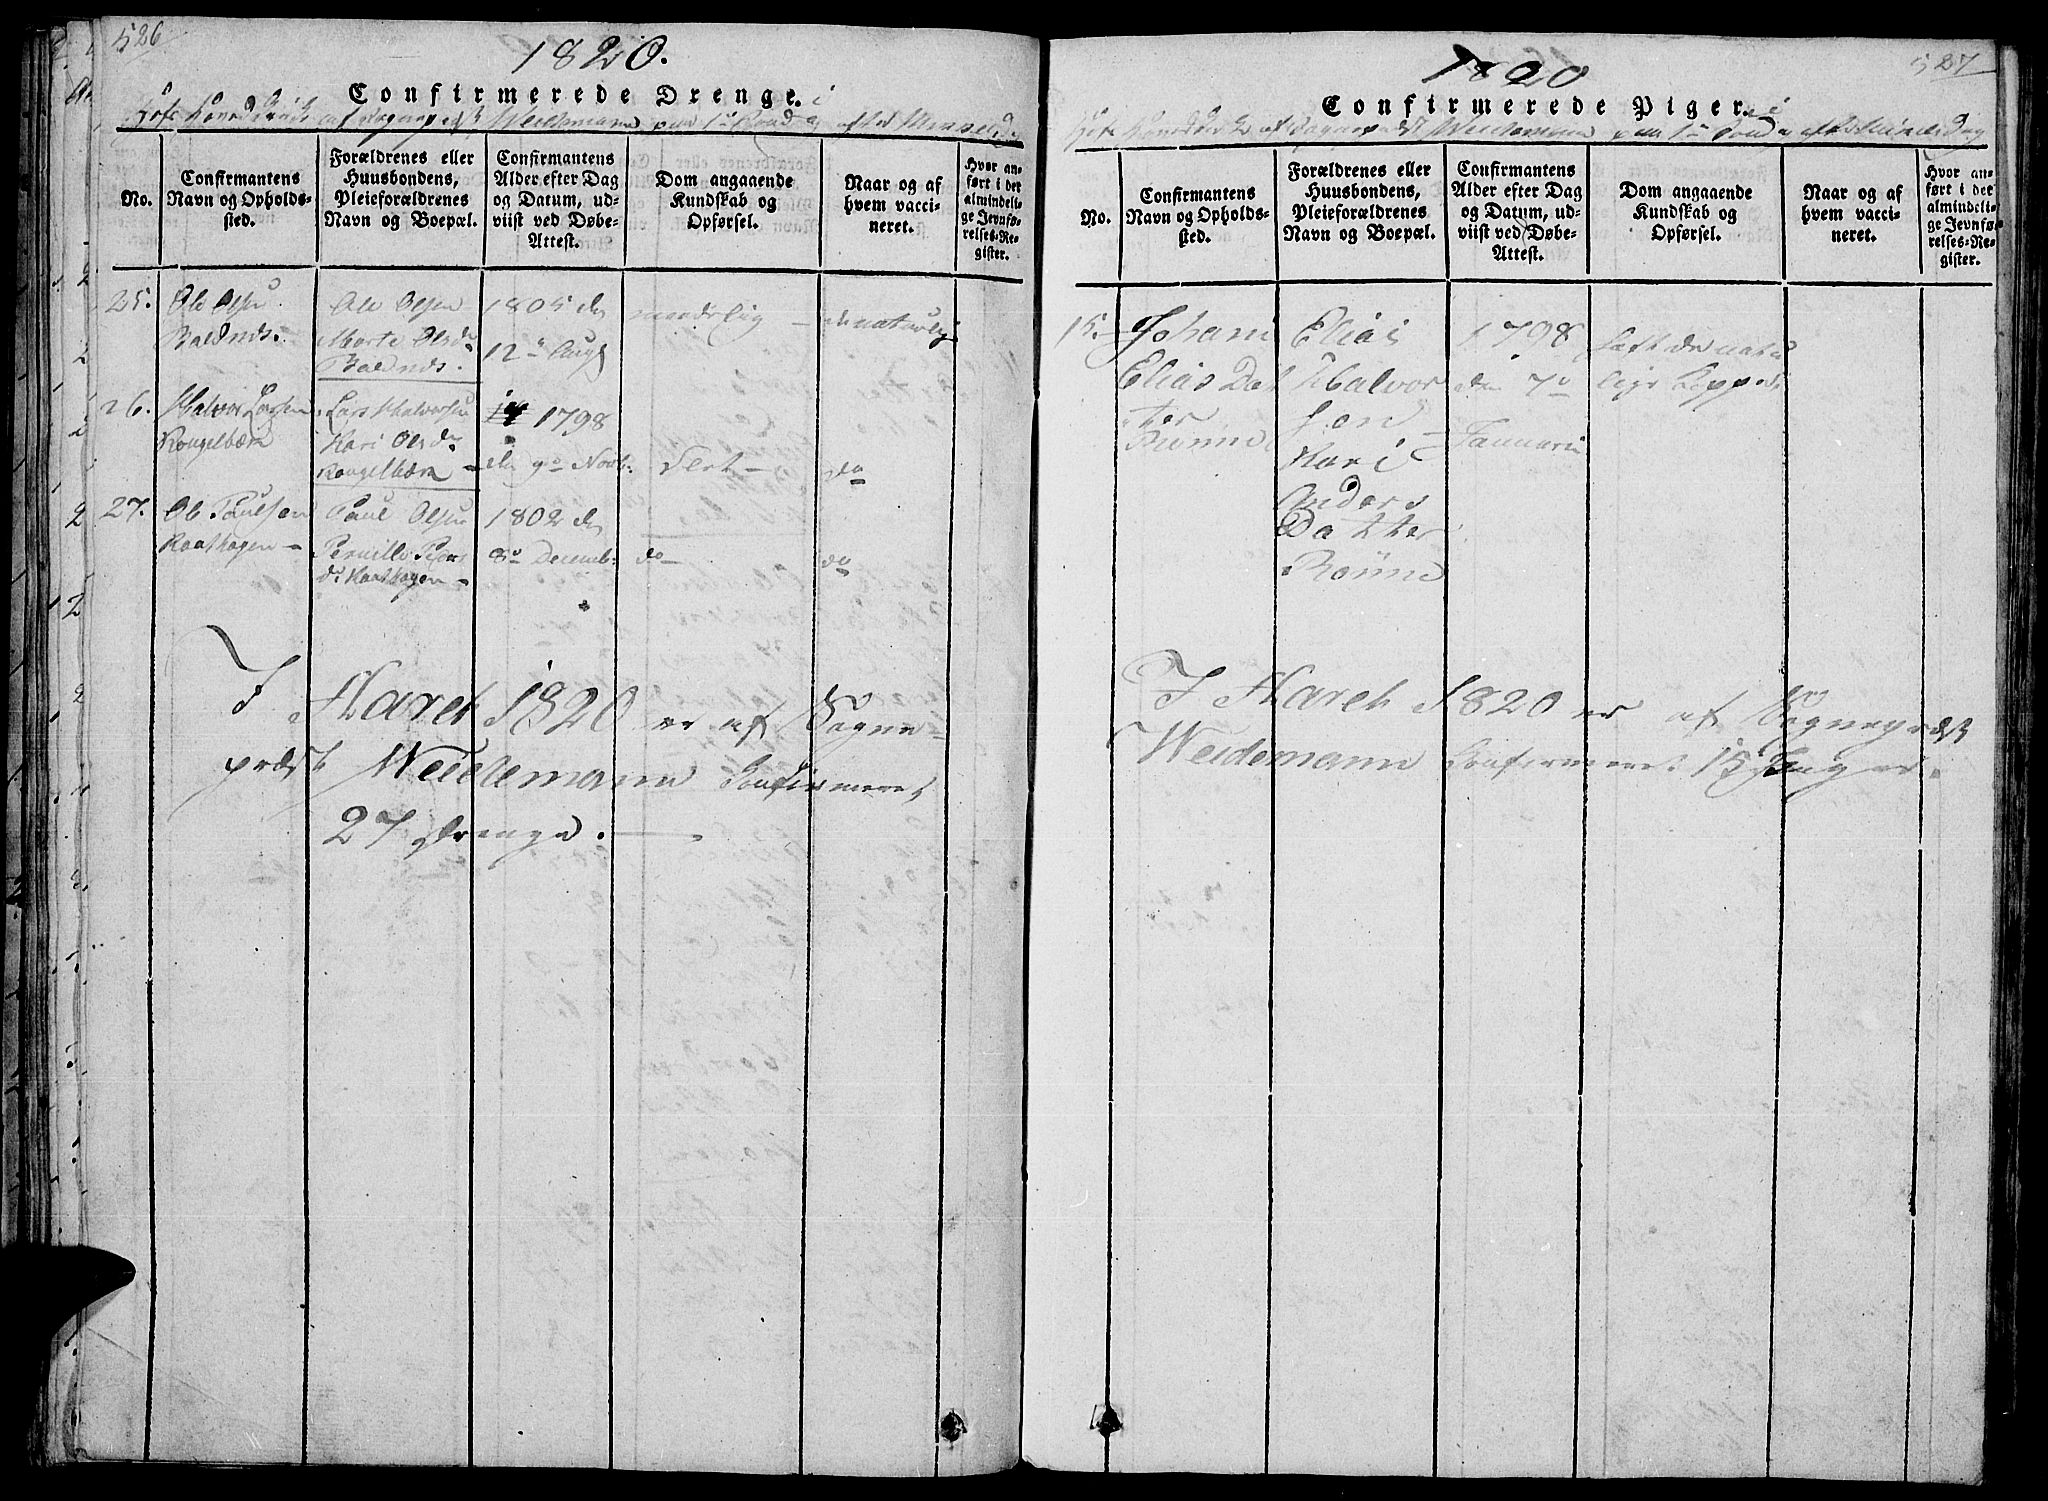 526
1820.
Confirmerede Drenge. i
af Sognepræst Weidemann paa
No.
Confirmantens Navn og Opholds-sted.
Forældrenes eller Huusbondens, Pleieforældrenes Navn og Boepæl.
Confirmantens Alder efter Dag og Datum, ud-viist ved Døbe-Attest.
Dom angaaende Kundskab og Opførsel.
Naar og af hvem vacci-neret.
Hvor an-ført i det almindeli-ge Jevnfø-relses-Re-gister.
25.
Ole Olsen
Ole Olsen
Marte Olsdr
1805 den
12te Aug
maadelig
de naturlig
26.
Halvor Larsen
Kongelbæra
Lars Halvorsen
Kari Olsdr
Kongelbæra
1798
den 9de Novb:
Slet
do
27.
Ole Paulsen
Raathagen
Paul Olsen
Pernille
dr. Raathagen
1802 den
8de Decemb:
do
do
I Aaret 1820 er af Sogne-
præst Weidemann Confirmeret
27 Drenge.
527
1820
Confirmerede Piger. i
af Sognepræst Weidemann paa
No.
Confirmantens Navn og Opholds-sted.
Forældrenes eller Huusbondens, Pleieforældrenes Navn og Boepæl.
Confirmantens Alder efter Dag og Datum, ud-viist ved Døbe-Attest.
Dom angaaende Kundskab og Opførsel.
Naar og af hvem vacci-neret.
Hvor an-ført i det almindeli-ge Jevnfø-relses-Re-gister.
15.
Johani
Elias Dat
ter
Rønne
Elias
Halvor
sen
Kari
Anders
Datter
Rønne
1798
den 7de
Januari
haft de natur
lige Kopper
I Aaret 1820 er af Sognepræst
Weidemann Confirmeret 15 Piger.